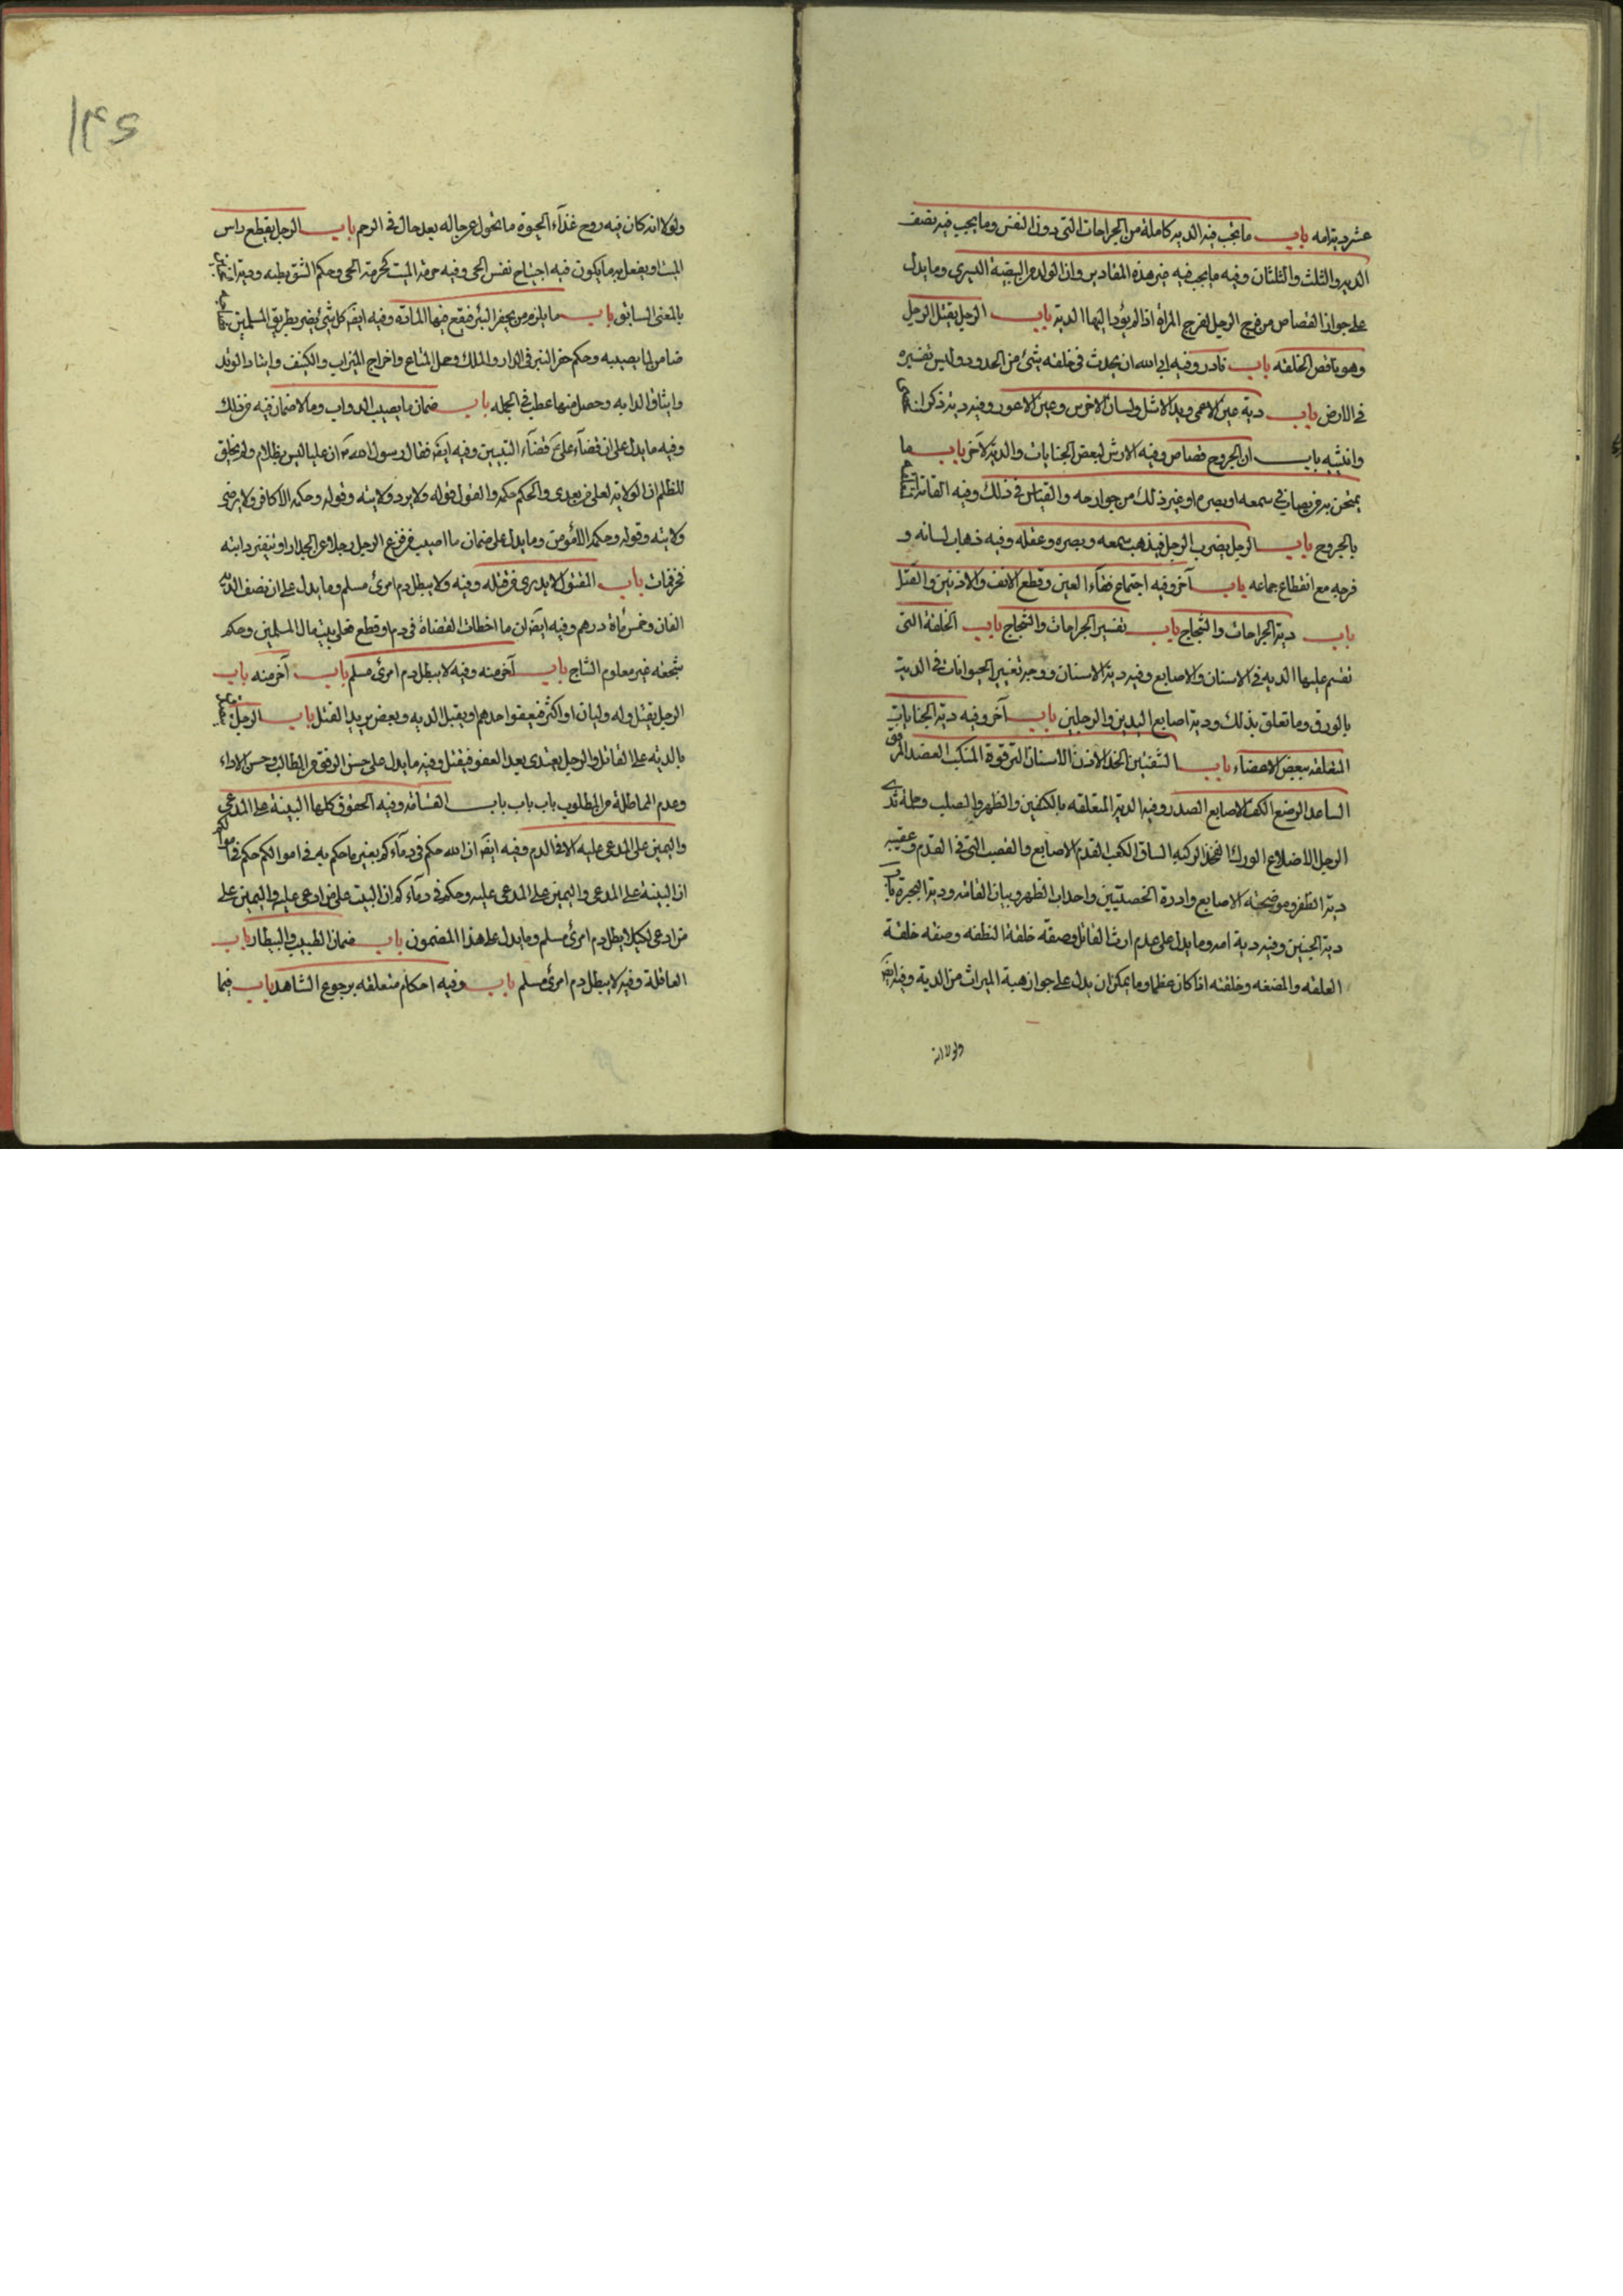 عشر دية امه باب ما يجب فيه الدية كاملة من الجراحات التى دون النفس وما يجب فيه نصف
الدية والثلث والثلثان وفيه ما يجب فيه غير هذه المقادير وان الولد من البيضة اليسرى وما يدل
على جواز القصاص من فرج الرجل لفرج المراة اذا لم يؤد اليها الدية باب الرجل يقتل الرجل
وهو ناقص الخلقه باب نادر وفيه ابى الله ان يحدث فى خلقه شئ من الحدود وليس تفسيره
فى الارض باب دية عين الاعمى ويد الاشل ولسان الاخرس وعين الاعور وفيه دية ذكر
وانثييه باب ان الجروح قصاص وفيه الارش لبعض الجنايات والدية لآخر باب ما
يمتحن به من يصاب فى سمعه او بصره او غير ذلك من جوارحه والقياس فى ذلك وفيه القسامة
بالجروح باب الرجل يضرب الرجل فيذهب سمعه وبصره وعقله وفيه ذهاب لسانه و
فرجه مع انقطاع جماعه باب آخر وفيه اجتماع فقاء العين وقطع الانف والاذنين والقتل
باب دية الجراحات والشجاج باب تفسير الجراحات والشجاج باب الخلقة التى
تقسم عليها الديه فى الاسنان والاصابع وفيه دية الاسنان ووجه تغيير الحيوانات فى الدية
بالورق وما تعلق بذلك ودية اصابع اليدين والرجلين باب آخر وفيه دية الجنايات
المتعلقه ببعض الاعضاء باب الشفتين الخد الاذن الاسنان الترقوة المنكب العضد المرفق
الساعد الرضع الكف الاصابع الصدر وفيه الدية المتعلقه بالكتفين والظهر والصلب وحلمة ثدى
الرجل الاضلاع الورك الفخذ الركبه الساق الكعب القدم الاصابع والقصب التى فى القدم وعقبيه
دية الظفر وموضحة الاصابع وادرة الخصيتين واحداب الظهر وبيان القامه ودية البجرة باب
دية الجنين وفيه دية امه وما يدل على عدم ارث القاتل وصفة خلقة النطفه وصفه خلقة
العلقه والمضغه وخلقته اذا كان عظما وما يمكن ان يدل على جواز هبة الميراث من الدية وفيه ايضا
ولولا انه
۱۴۶
ولولا انه كان فيه روح غذاء الحيوة ما تحول عن حاله بعد حال فى الرحم باب الرجل يقطع راس
الميت او يفعل به ما يكون فيه اجتياح نفس الحى وفيه حرمة الميت كحرمة الحى وحكم الشق بطنه وديته
بالمعنى السابق باب ما يلزم من يحفر البئر فيقع فيها المارة وفيه ايضا كل شئ يضر بطريق المسلمين
ضامن لما يصيبه وحكم حفر البئر فى الدار والملك وحمل المتاع واخراج الميزاب والكنيف وايتاد الوتد
وايثاق الدابه وحصل منها عطب فى الجمله باب ضمان ما يصيب الدواب وما لا ضمان فيه من ذلك
وفيه ما يدل على ان قضاء على قضاء النبيين وفيه ايضا فقال رسول الله ان عليا ليس بظلام ولم يخلق
للظلم ان الولاية لعلى من بعدى والحكم حكمه والقول قوله ولا يرد ولايته وقوله وحكمه الا كافر ولا يرضى
ولايته وقوله وحكمه الا مؤمن وما يدل على ضمان ما اصيب من فزع الرجل رجلا على الجدار او تنفير دابته
فخر فمات باب المقتول لا يدرى من قتله وفيه ولا يبطل دم امرئ مسلم وما يدل على ان نصف الدية
الفان وخمس مأة درهم وفيه ايضا ان ما اخطات القضاة فى دم او قطع فعلى بيت مال المسلمين وحكم
شجته غير معلوم الشاج باب آخر منه وفيه لا يبطل دم امرئ مسلم باب آخر منه باب
الرجل يقتل وله وليان او اكثر فيعفو احدهم او يقبل الديه وبعض يريد القتل باب الرجل
بالدية على القاتل والرجل يعتدى بعد العفو فيقتل وفيه ما يدل على حسن الرفق من الطالب وحسن الاداء
وعدم المماطلة من المطلوب باب باب باب القسامه وفيه الحقوق كلها البينة على المدعى
واليمين على المدعى عليه الا فى الدم وفيه ايضا ان الله حكم فى دمآءكم بغير ما حكم به فى اموالكم حكم فى اموالكم
ان البينة على المدعى واليمين على المدعى عليه وحكم فى دمآءكم ان البينة على من ادعى عليه واليمين على
من ادعى لكيلا يبطل دم امرئ مسلم وما يدل على هذا المضمون باب ضمان الطبيب والبيطار باب
العاقلة وفيه لا يبطل دم امرئ مسلم باب وفيه احكام متعلقه برجوع الشاهد باب فيما